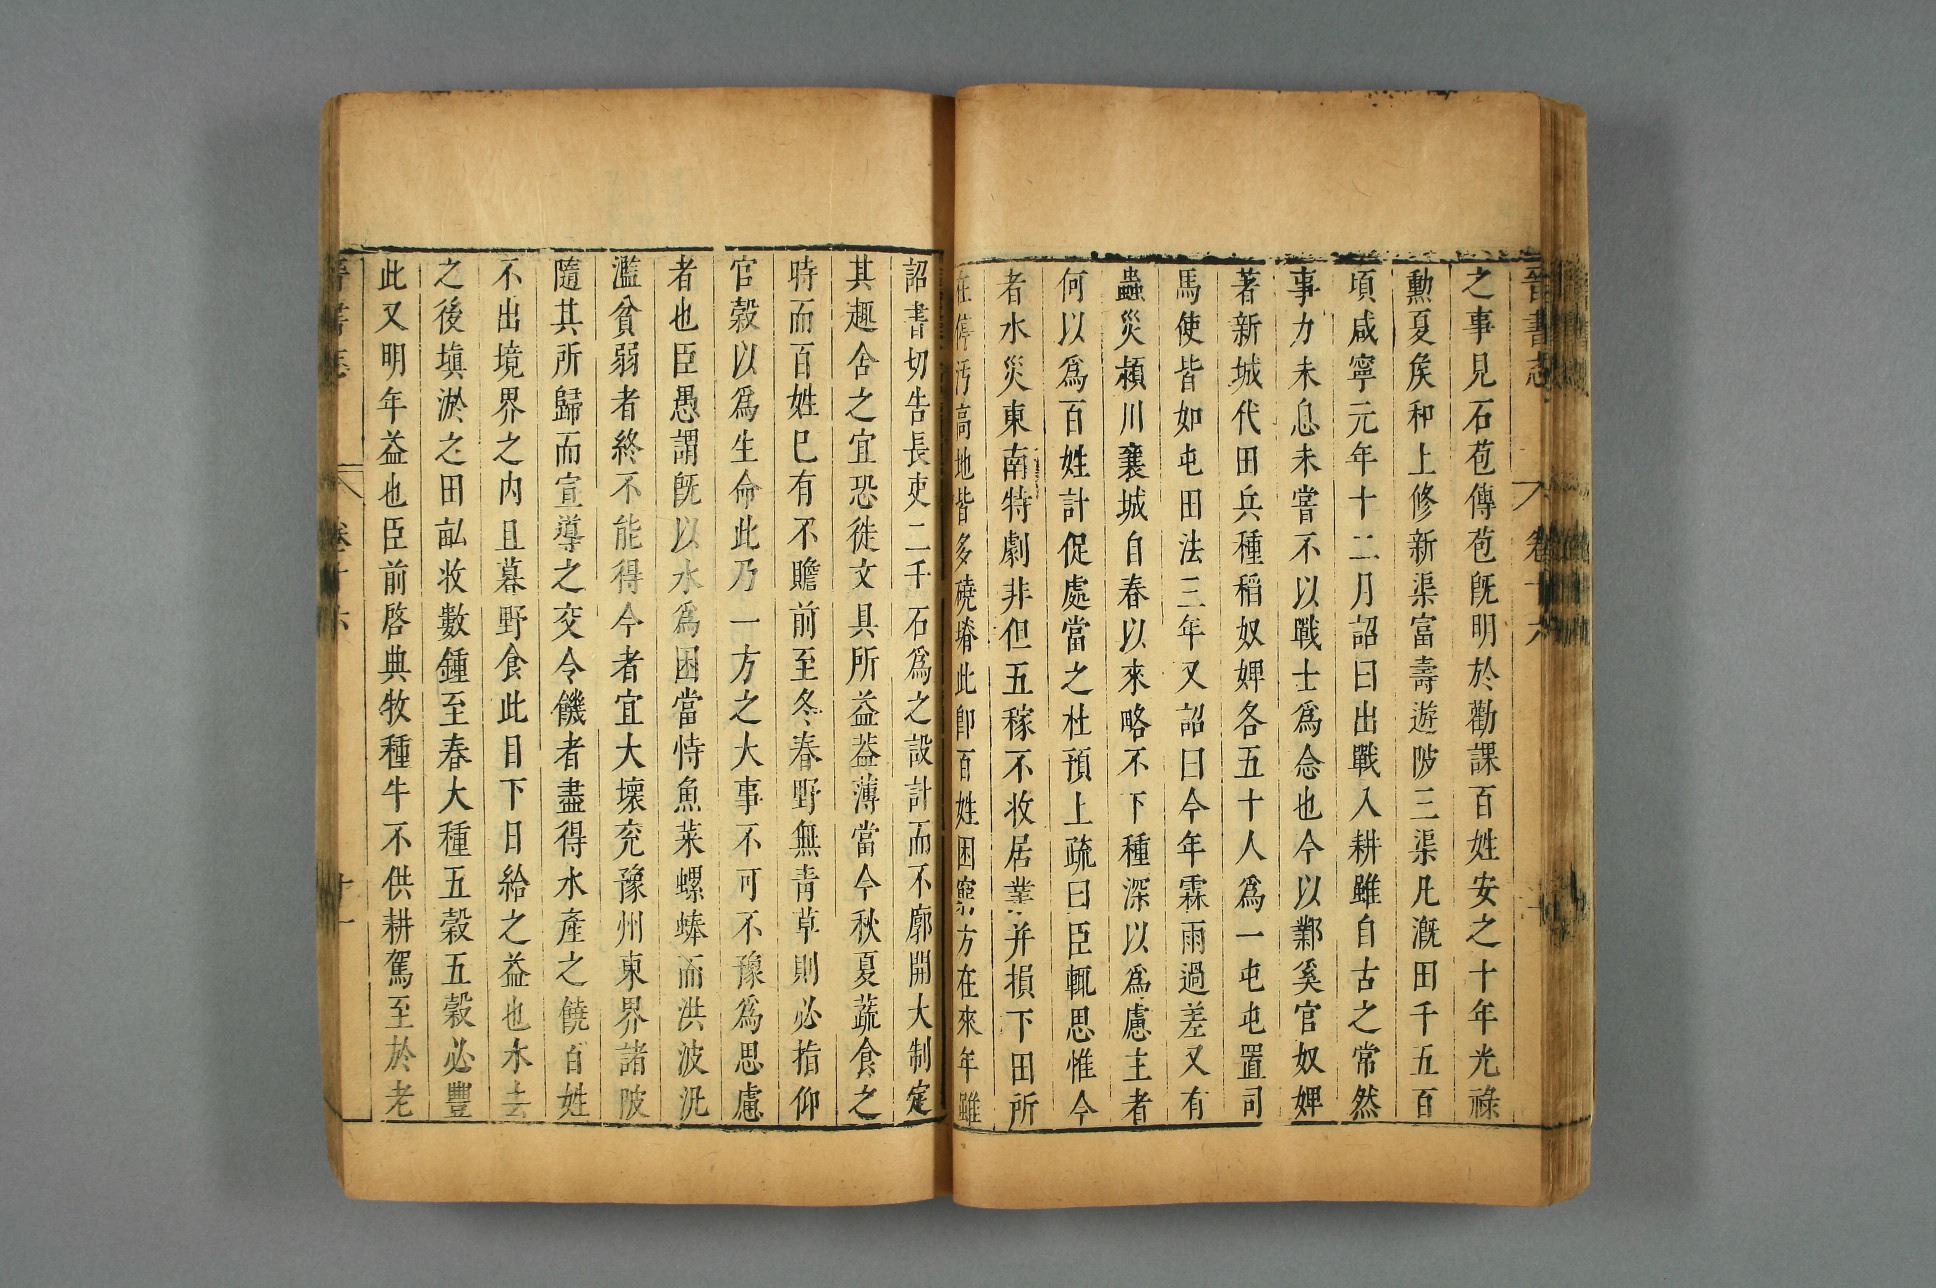 晉書志 卷十六
之事見石苞傳苞旣明於勸課百姓安之十年光祿
勲夏侯和上修新渠富壽遊陂三渠凡漑田千五百
頃咸寧元年十二月詔曰出戰入耕雖自古之常然
事力未息未嘗不以戰士爲念也今以鄴奚官奴婢
著新城代田兵種稻奴婢各五十人爲一屯屯置司
馬使皆如屯田法三年又詔曰今年霖雨過差又有
蟲災潁川襄城自春以來略不下種深以爲慮主者
何以爲百姓計促處當之杜預上疏曰臣輒思惟今
者水災東南特劇非但五稼不收居業并損下田所
在停汚高地皆多磽塉此卽百姓困窮方在來年雖
詔書切告長吏二千石爲之設計而不廓開大制定
其趣舍之宜恐徒文具所益葢薄當今秋夏蔬食之
時而百姓已有不贍前至冬春野無青草則必指仰
官穀以爲生命此乃一方之大事不可不豫爲思慮
者也臣愚謂旣以水爲困當恃魚菜螺蜯而洪波汎
濫貧弱者終不能得今者宜大壞兖豫州東界諸陂
隨其所歸而宣導之交令饑者盡得水產之饒百姓
不出境界之内且暮野食此目下日給之益也水去
之後塡淤之田畝收數鍾至春大種五穀五穀必豐
此又明年益也臣前啓典牧種牛不供耕駕至於老
晉書志 卷十六 十一